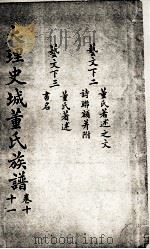 董氏著述之文
藝文下二
詩聯補附
董氏著述
藝文下三
書名
大理史城董氏族譜
卷十
十一